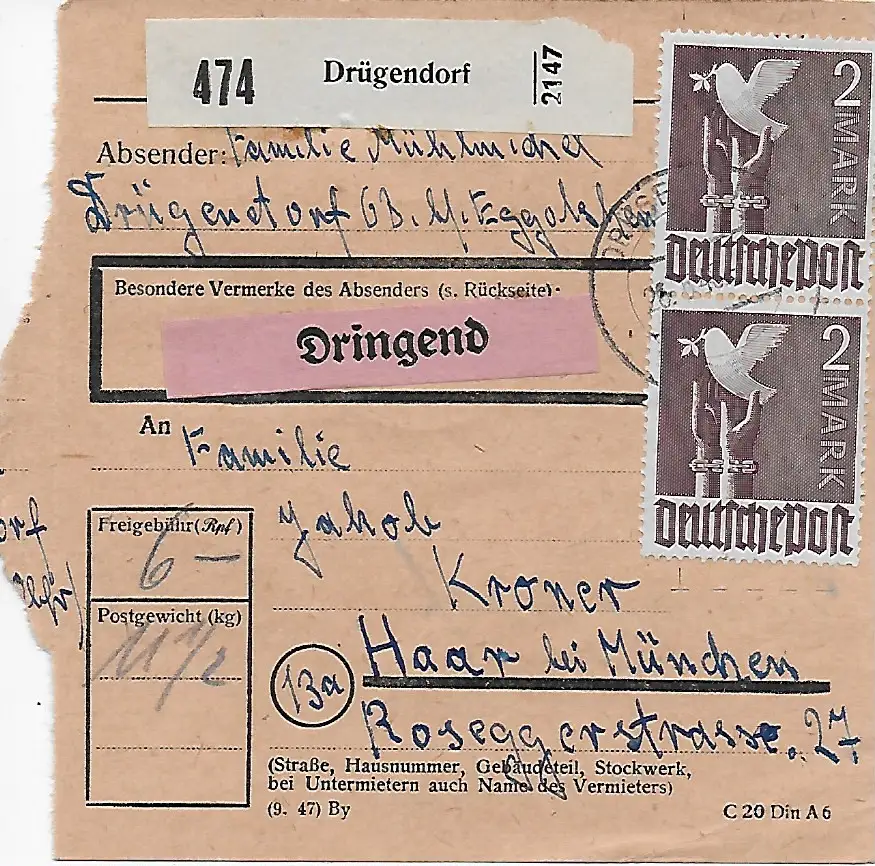 474 Drügendorf 2147
Absender: Familie Mühlmichel
Drügendorf 63. 
Besondere Vermerke des Absenders (s. Rückseite):
Dringend
An Familie
Jakob
Kroner
13a Haar bei München
Roseggerstrasse. 27
(Straße, Hausnummer, Gebäudeteil, Stockwerk,
bei Untermietern auch Name des Vermieters)
(9. 47) By
C 20 Din A 6
Freigebühr (Rpf)
6 —
Postgewicht (kg)
11 1/2
orf
2 MARK
Deutsche Post
2 MARK
Deutsche Post